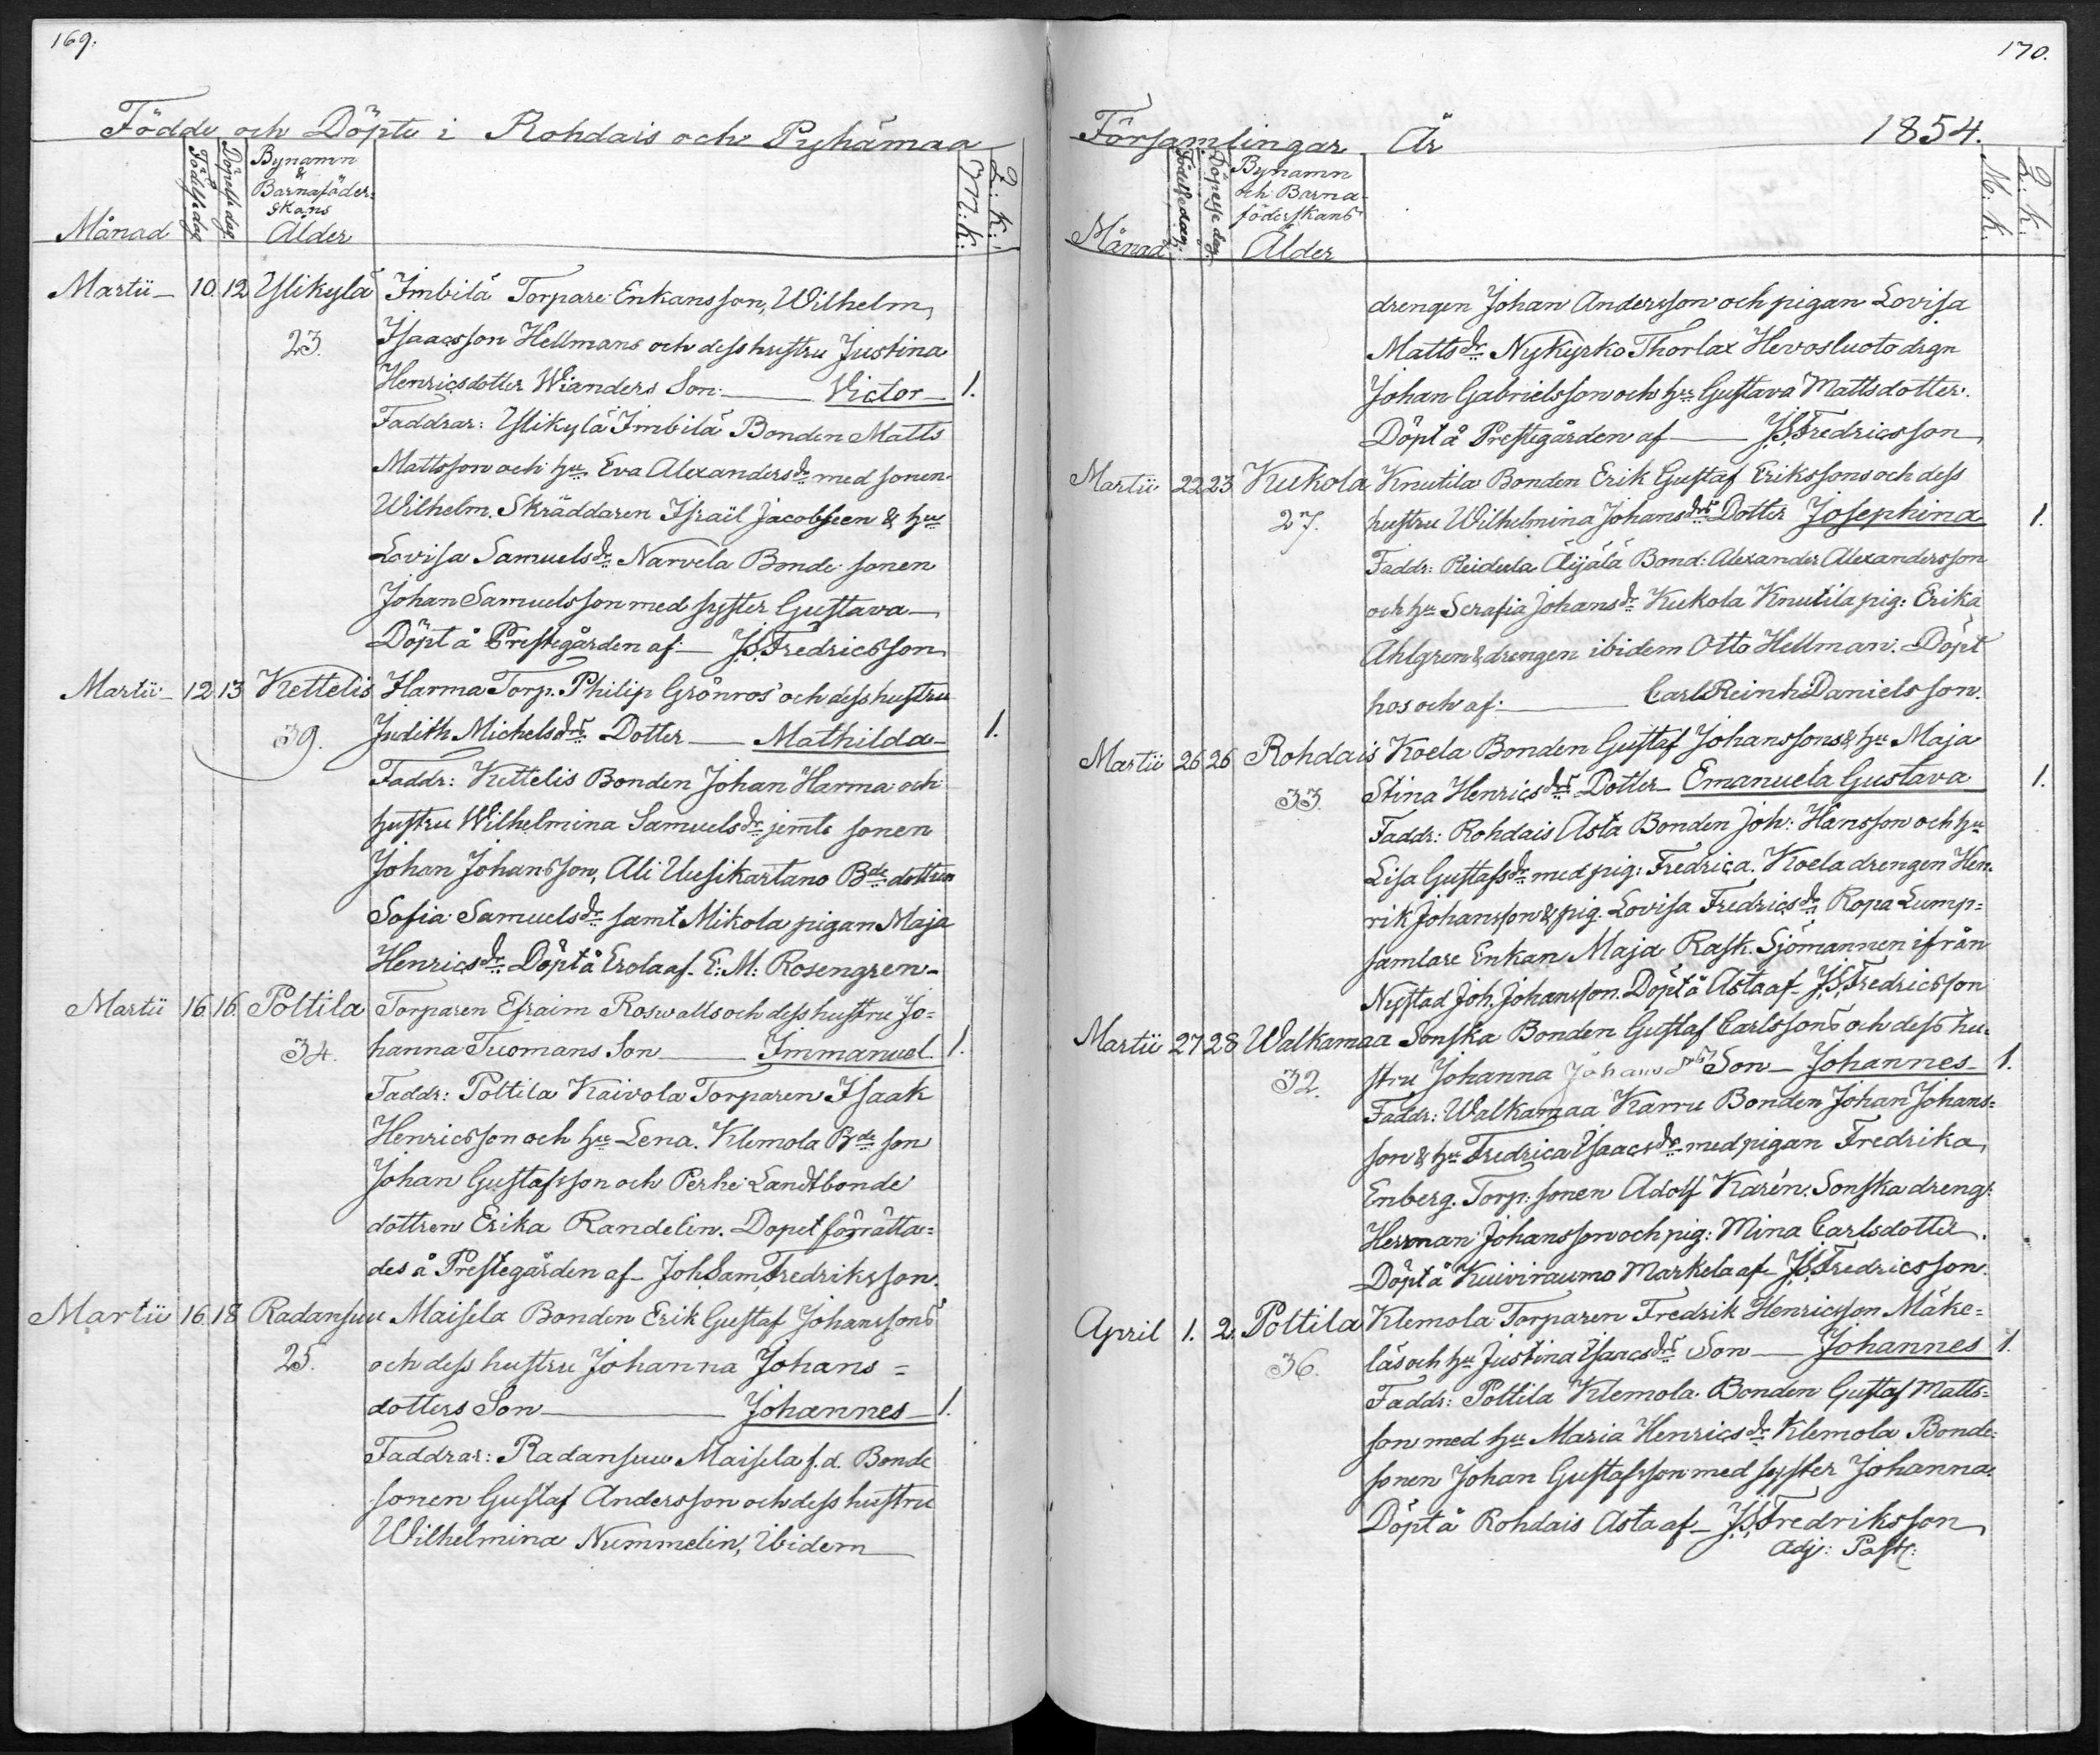 169.
Födde och Döpte i Rohdais och Pyhämaa
Månad
Födelse dag
Döpelse dag
Bynamn
&
Barnaföder-
skans
Ålder
M: K:
Q: K:
Martii 10 12 Ylikylä Imbilä Torpare Enkans son, Wilhelm
23. Isaacsson Hellmans och dess hustru Justina
Henricsdotter Wianders Son Victor 1.
Faddrar: Ylikylä Imbilä Bonden Matts
Mattsson och hu Eva Alexandersdr med sonen
Wilhelm. Skräddaren Israël Jacobsen & hu
Lovisa Samuelsdr Narvela Bonde sonen
Johan Samuelsson med syster Gustava
Döpt å Prestegården af J.S. Fredricsson
Martii 12 13 Kettelis Harma Torp. Philip Grönros och dess hustru
39. Judith Michelsdrs Dotter Mathilda 1.
Faddr: Kettelis Bonden Johan Harma och
hustru Wilhelmina Samuelsdr jemte sonen
Johan Johansson, Ali Uusikartano Bde dottren
Sofia Samuelsdr samt Mikola pigan Maja
Henricsdr Döpt å Erola af E: M: Rosengren
Martii 16 16. Poltila Torparen Efraim Roswalls och dess hustru Jo=
34. hanna Tuomans Son Immanuel 1.
Faddr: Poltila Kaivola Torparen Isaak
Henricsson och hu Lena. Klemola Bde son
Johan Gustafsson och Perhe Landtbonde
dottren Erika Randelin. Dopet förrätta=
des å Prestegården af Joh Sam Fredriksson.
Martii 16 18 Radansuu Maisela Bonden Erik Gustaf Johanssons
25. och dess hustru Johanna Johans=
dotters Son Johannes 1.
Faddrar: Radansuu Maisela f.d. Bonde
sonen Gustaf Andersson och dess hustru
Wilhelmina Nummelin, Ibidem
170.
Församlingar År 1854.
Månad
Födelse dag:
Döpelse dag:
Bynamn
och Barna-
föderskans
Ålder
M: K:
Q: K:
drengen Johan Andersson och pigan Lovisa
Mattsdr Nykyrko Thorlax Hevosluoto drgn
Johan Gabrielsson och hu Gustava Mattsdotter.
Döpt å Prestegården af J.S. Fredricsson
Martii 22 23 Kukola Knutila Bonden Erik Gustaf Erikssons och dess
27. hustru Wilhelmina Johansdrs Dotter Josephina 1.
Faddr: Reidula Äijälä Bond: Alexander Alexandersson
och hu Serafia Johansdr Kukola Knutila pig: Erika
Åhlgren & drengen ibidem Otto Hellman. Döpt
hos och af: Carl Reinh: Danielsson.
Martii 26 26 Rohdais Koela Bonden Gustaf Johanssons & hu Maja
33. Stina Henricsdrs Dotter Emanuela Gustava 1.
Faddr: Rohdais Asta Bonden Joh: Hansson och hu
Lisa Gustafsdr med pig: Fredrica. Koela drengen Hen-
rik Johansson & pig. Lovisa Fredricsdr Ropa Lump=
samlare Enkan Maja Rask. Sjömannen ifrån
Nystad Joh. Johansson. Döpt å Asta af J.S. Fredricsson
Martii 27 28 Walkamaa Sonska Bonden Gustaf Carlssons och dess hu-
32. stru Johanna Johansdrs Son Johannes 1.
Faddr: Walkamaa Karru Bonden Johan Johans=
son & hu Fredrica Isaacsdr med pigan Fredrika
Enberg. Torp: sonen Adolf Karén. Sonska dreng:
Herrman Johansson och pig: Mina Carlsdotter.
Döpt å Kuiviraumo Markela af J.S. Fredricsson
April 1. 2. Poltila Klemola Torparen Fredrik Henricsson Mäke=
36. läs och hu Justina Isaacsdrs Son Johannes 1.
Faddr: Poltila Klemola Bonden Gustaf Matts=
son med hu Maria Henricsdr Klemola Bonde=
sonen Johan Gustafsson med syster Johanna.
Döpt å Rohdais Asta af J.S. Fredriksson
Adj: Past: